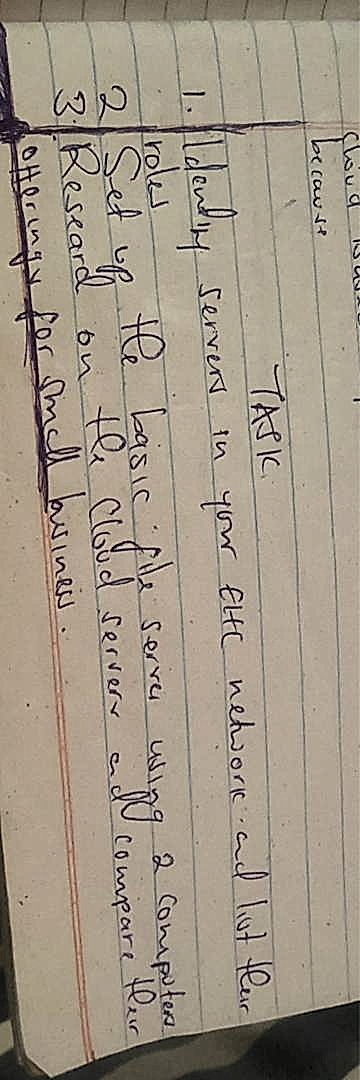 because
TASK.
1. Identify servers in your EHC network and list their
roles
2 Set up the basic file server using 2 computers
3. Research on the Cloud servers and compare their
offerings for small business.